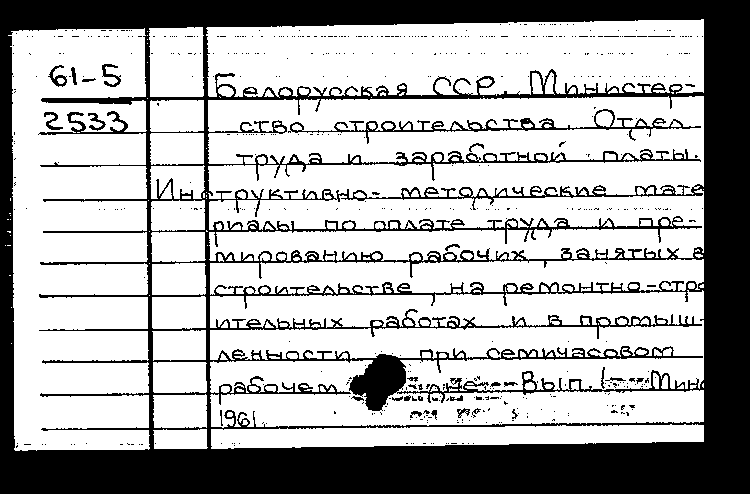 61-5
2533
Белорусская ССР. Министер-
ство строительства. Отдел
труда и заработной платы.
Инструктивно-методические мате
риалы по оплате труда и пре-
мированию рабочих, занятых в
строительстве, на ремонтно-стро
ительных работах и в промыш-
ленности при семичасовом
рабочем дне. Вып. 1 Минс
1961.